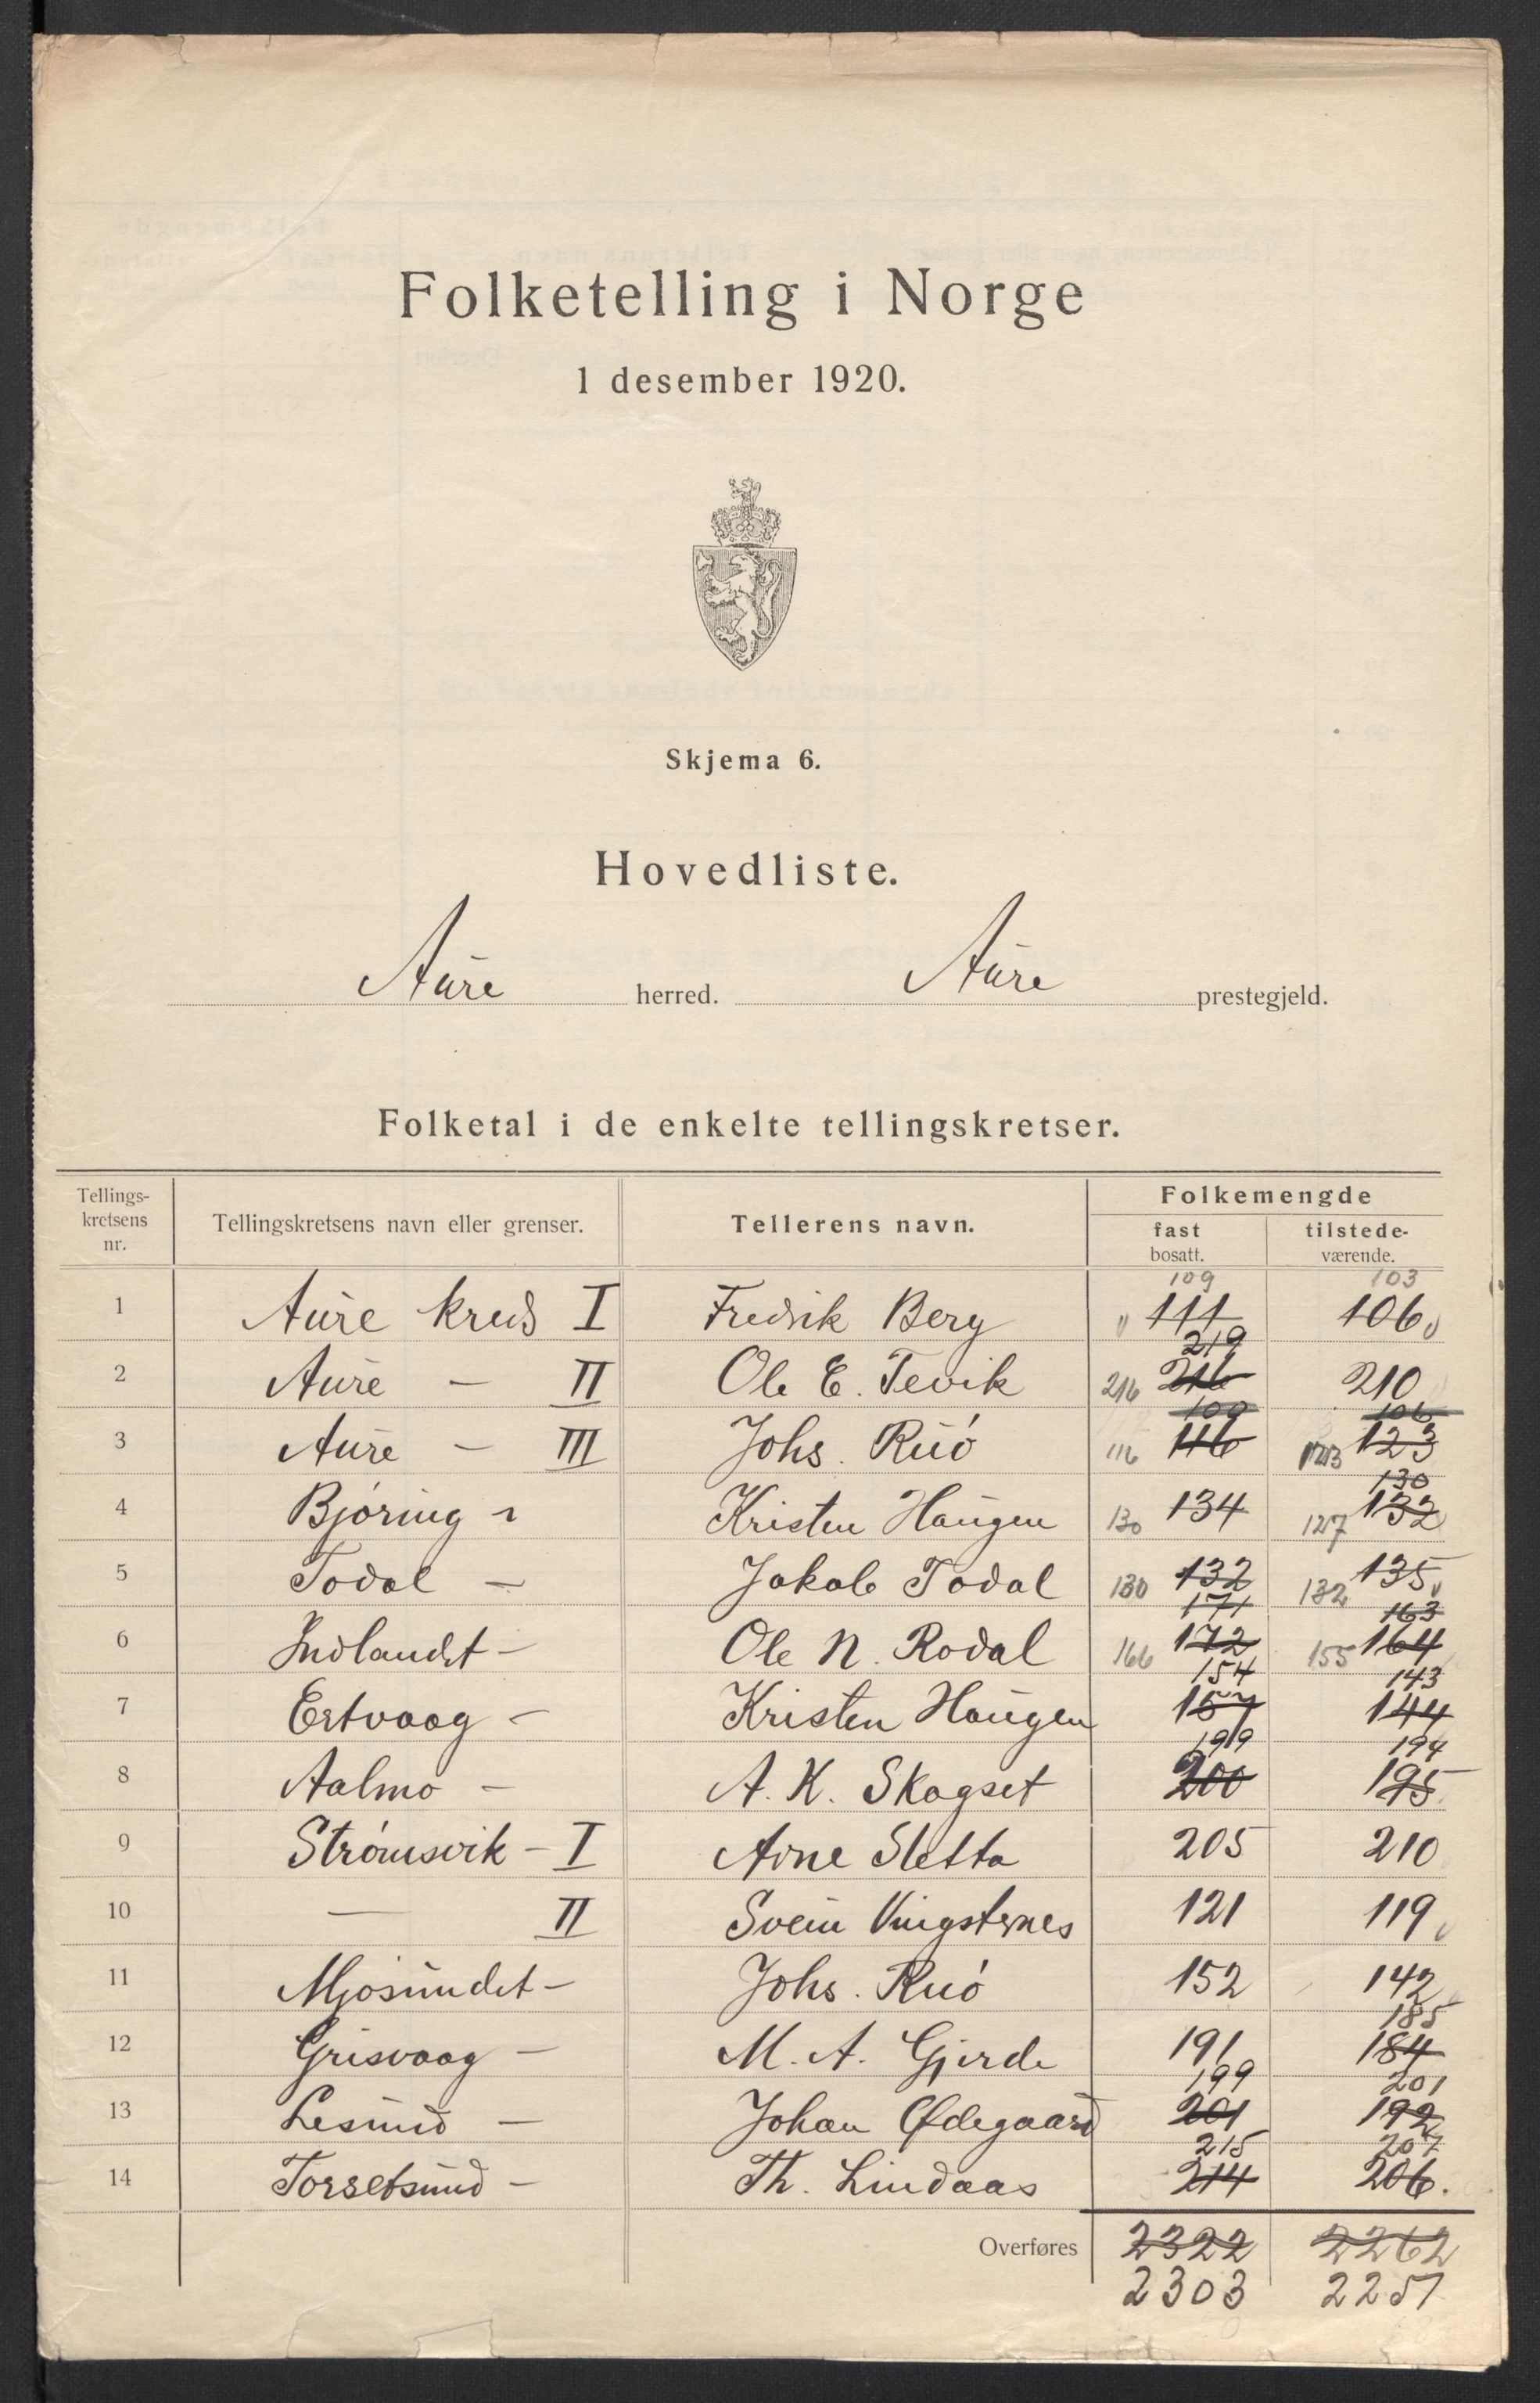 Folketelling i Norge
1 desember 1920.
Skjema 6.
Hovedliste.
Aure herred. Aure prestegjeld.
Folketal i de enkelte tellingskretser.
Tellings-kretsens nr. Tellingskretsens navn eller grenser. Tellerens navn. Folkemengde
fast bosatt. tilstede-værende.
109 103
1 Aure kreds I Fredrik Berg 111 106
219
2 Aure — II Ole E. Tevik 216 216 210
109 106
3 Aure — III Johs. Ruø 116 116 123 123
130
4 Bjøring Kristen Haugen 130 134 127 132
5 Todal — Jakob Todal 130 132 132 135
171 163
6 Indlandet — Ole N. Rodal 166 172 155 164
154 143
7 Ertvaag — Kristen Haugen 157 144
199 194
8 Aalmo — A. K. Skogset 200 195
9 Strømsvik — I Arne Sletta 205 210
10 — II Svein Vingsternes 121 119
11 Mjosundet — Johs. Ruø 152 142
185
12 Grisvaag — M. A. Gjerde 191 184
199 201
13 Lesund — Johan Ødegaard 201 192
215 207
14 Torsetsund — Th. Lindaas 214 206.
Overføres 2322 2262
2303 2257